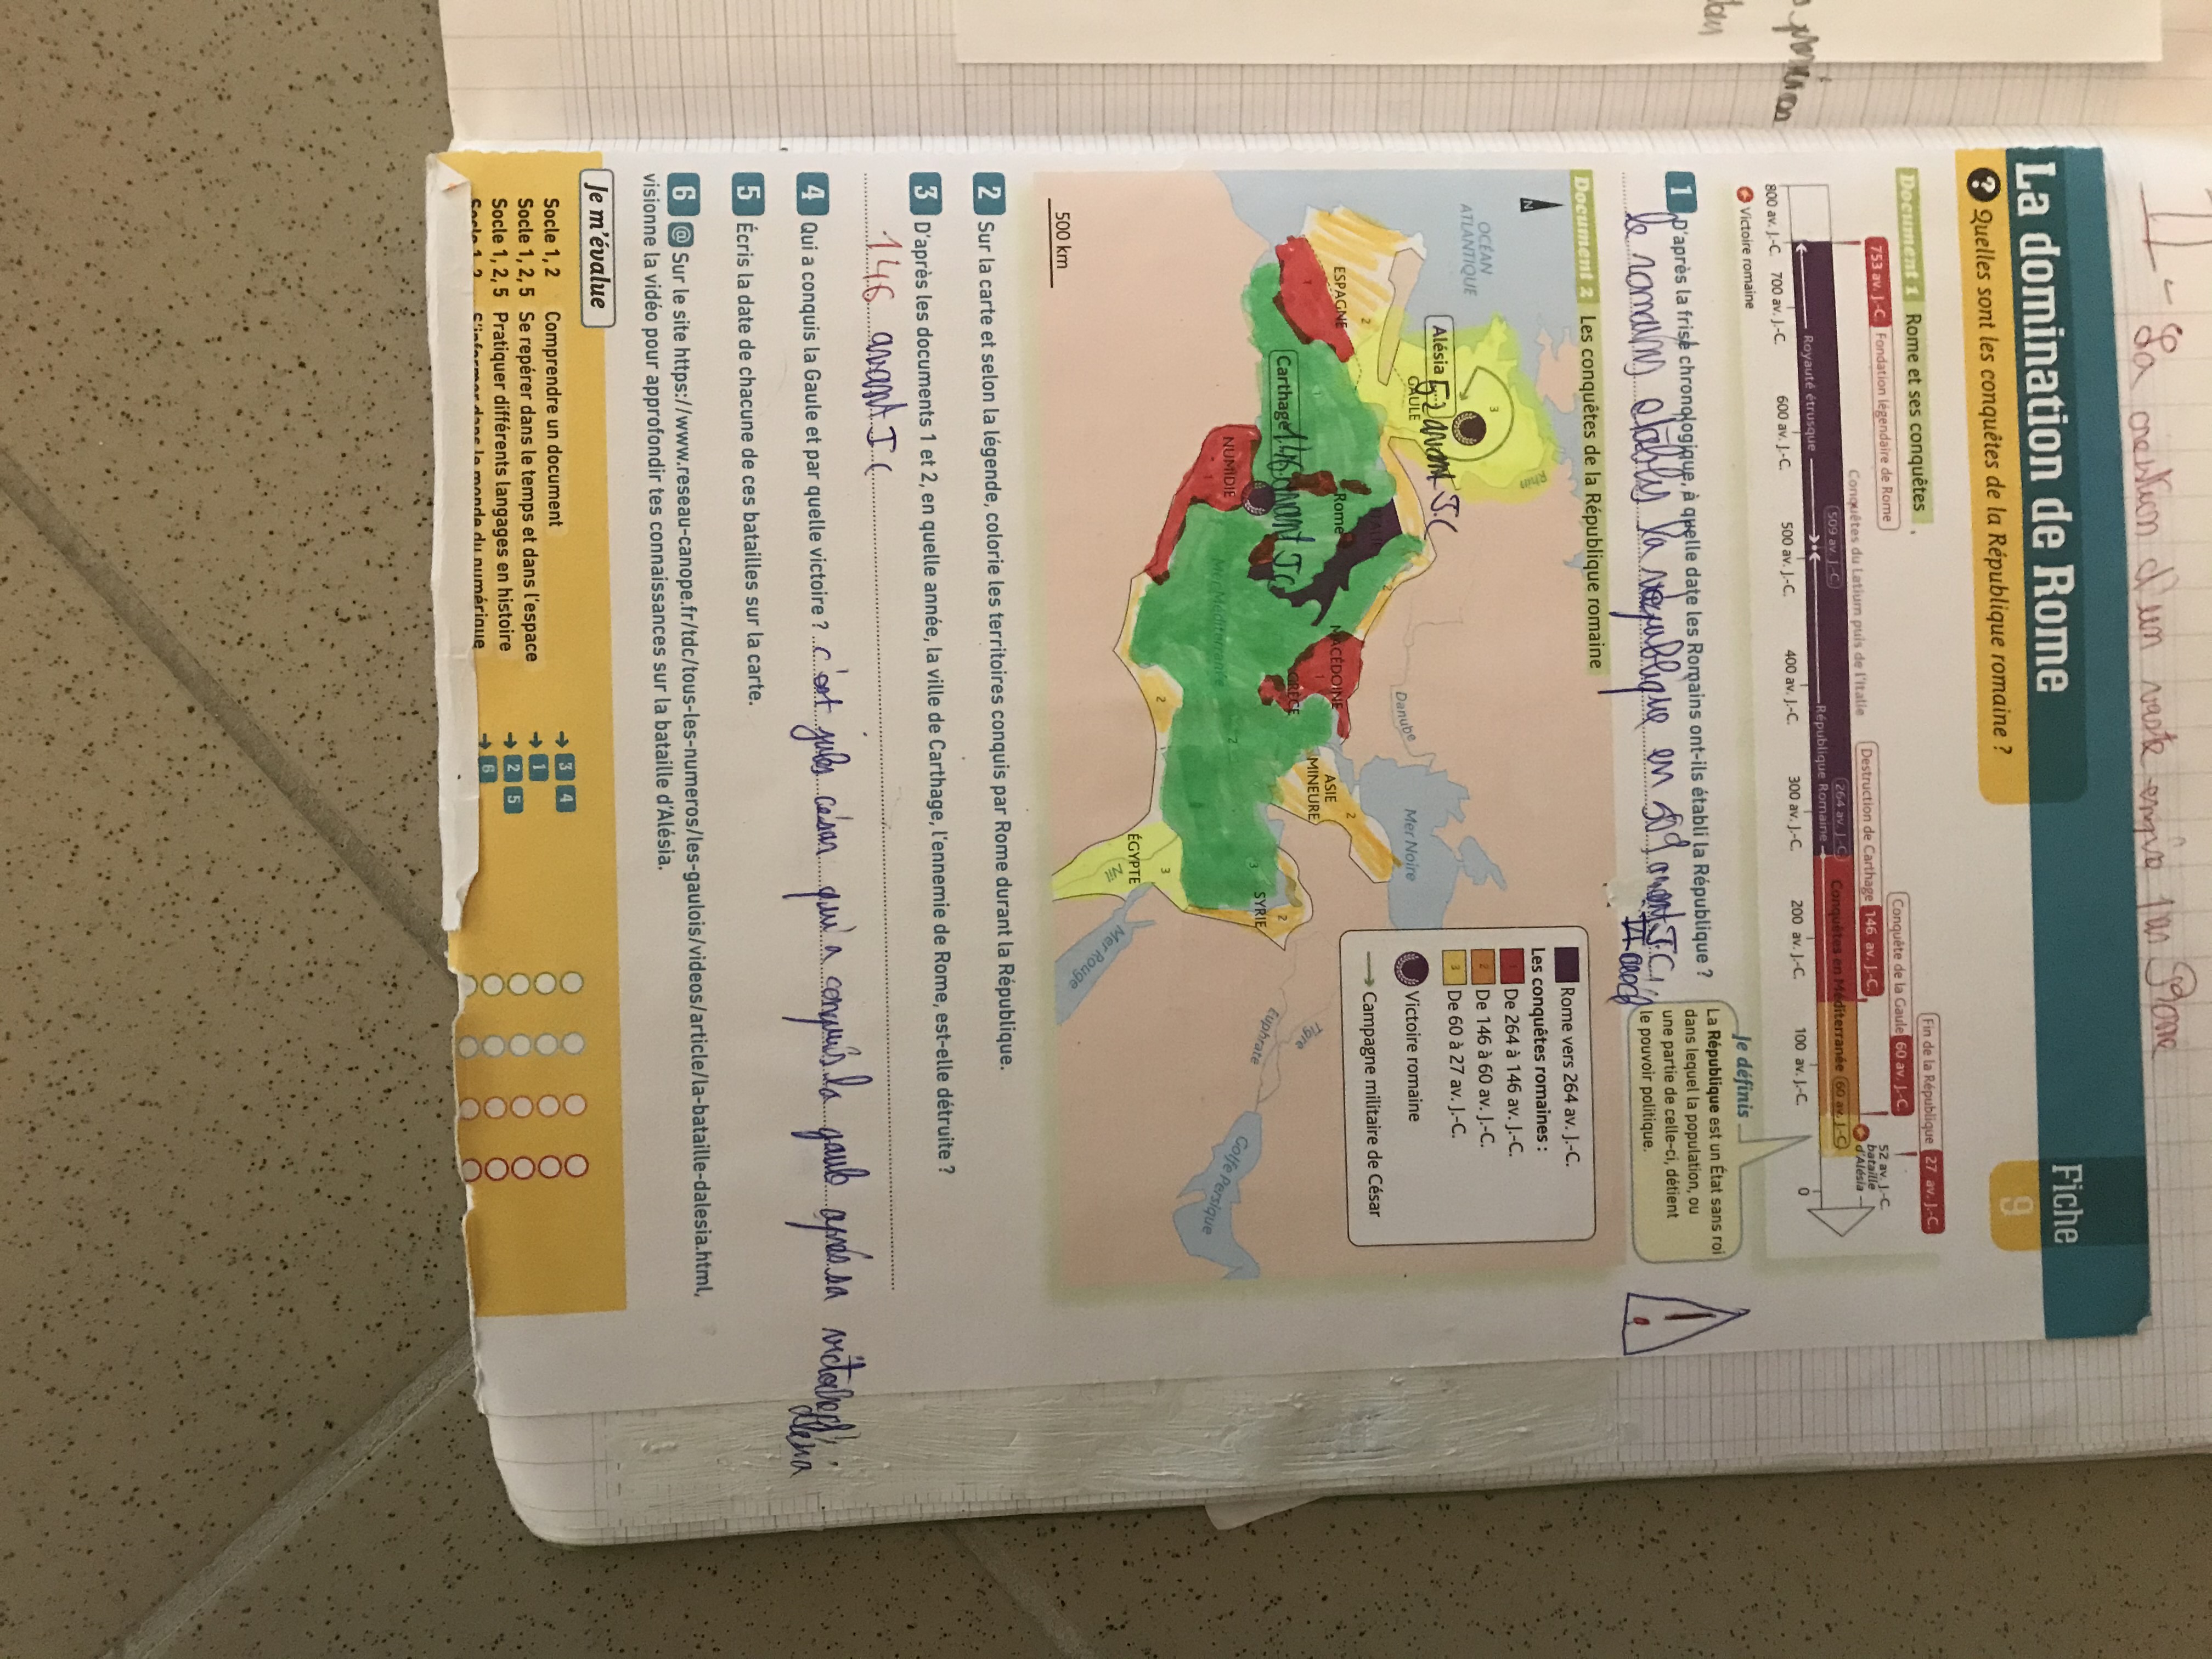 II - La création d'un vaste empire par Rome
La domination de Rome
Fiche
9
? Quelles sont les conquêtes de la République romaine ?
Document 1 Rome et ses conquêtes
753 av. J.-C. Fondation légendaire de Rome
Conquêtes du Latium puis de l'Italie
Destruction de Carthage 146 av. J.-C.
Conquête de la Gaule 60 av. J.-C.
Fin de la République 27 av. J.-C.
52 av. J.-C.
bataille
d'Alésia
509 av. J.-C.
264 av. J.-C.
Conquêtes en Méditerranée 60 av. J.-C.
Royauté étrusque
République Romaine
800 av. J.-C. 700 av. J.-C. 600 av. J.-C. 500 av. J.-C. 400 av. J.-C. 300 av. J.-C. 200 av. J.-C. 100 av. J.-C. 0
Victoire romaine
Je définis
La République est un État sans roi
dans lequel la population, ou
une partie de celle-ci, détient
le pouvoir politique.
1 D'après la frise chronologique, à quelle date les Romains ont-ils établi la République ?
le romains établi la république en 509 avant J.C
Document 2 Les conquêtes de la République romaine
N
OCÉAN
ATLANTIQUE
Rhin
Alésia 52 avant J.C
3
GAULE
ESPAGNE
1
2
Carthage 146 avant J.C
NUMIDIE
Rome
Mer Méditerranée
MACÉDOINE
1
GRÈCE
Danube
Mer Noire
ASIE
MINEURE
2
SYRIE
2
3
ÉGYPTE
Nil
Mer Rouge
Tigre
Euphrate
Golfe Persique
500 km
Rome vers 264 av. J.-C.
Les conquêtes romaines :
1 De 264 à 146 av. J.-C.
2 De 146 à 60 av. J.-C.
3 De 60 à 27 av. J.-C.
Victoire romaine
Campagne militaire de César
2 Sur la carte et selon la légende, colorie les territoires conquis par Rome durant la République.
3 D'après les documents 1 et 2, en quelle année, la ville de Carthage, l'ennemie de Rome, est-elle détruite ?
146 avant J C
4 Qui a conquis la Gaule et par quelle victoire ? c'est jules césar qui a conquis la gaule après sa victoire d'
5 Écris la date de chacune de ces batailles sur la carte.
6 @ Sur le site https://www.reseau-canope.fr/tdc/tous-les-numeros/les-gaulois/videos/article/la-bataille-dalesia.html,
visionne la vidéo pour approfondir tes connaissances sur la bataille d'Alésia.
Je m'évalue
Socle 1, 2 Comprendre un document → 3 4
Socle 1, 2, 5 Se repérer dans le temps et dans l'espace → 1
Socle 1, 2, 5 Pratiquer différents langages en histoire → 2 5
Socle 1, 2, 5 S'informer dans le monde du numérique → 6